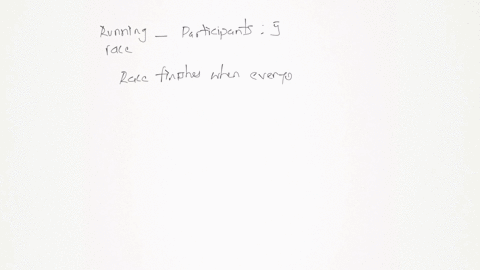 Running _ Participants : 5
race
Race finishes when everyo